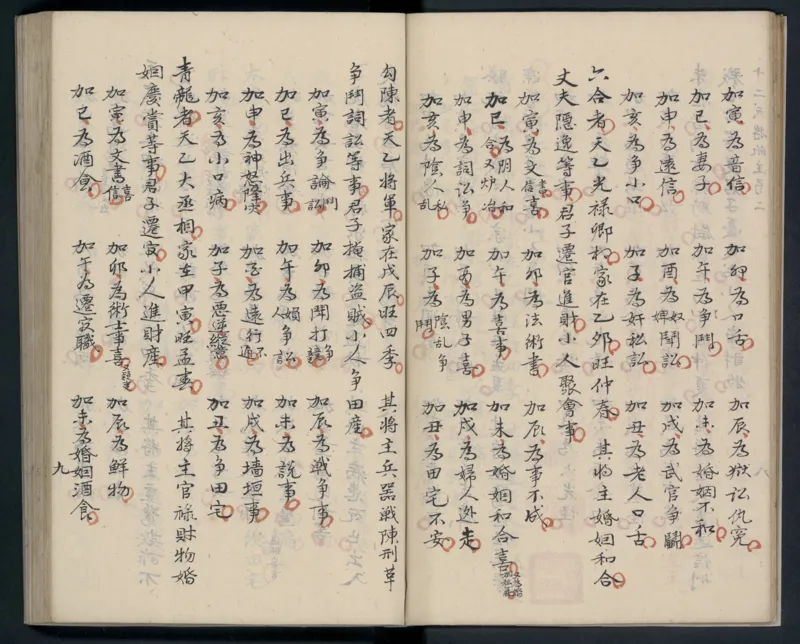 加寅為音信 加卯為口舌 加辰為獄訟仇寃
加巳為妻子 加午為争鬪 加未為婚姻不和
加申為遠信 加酉為奴婢鬪訟 加戌為武官争鬪
加亥為争小口 加子為奸私訟 加丑為老人口舌
六合者天乙光禄卿相家在乙夘旺仲春 其將主婚姻和合
丈夫隠逸等事君子遷官進財小人聚會事
加寅為文書信喜 加卯為法術書 加辰為事不成
加巳為阴人和合又炉冶 加午為喜事 加未為婚姻和合喜
加申為詞訟争 加酉為男子喜 加戌為婦人逃走
加亥為陰人私乱 加子為陰乱争鬪 加丑為田宅不安
勾陳者天乙將軍家在戊辰旺四季 其將主兵器戦陳刑草
争鬥詞訟等事君子掩捕盗賊小人争田産
加寅為争論鬥訟 加卯為鬪打争 加辰為戦争事
加巳為出兵事 加午為人頬争訟 加未為説事
加申為神奴 加酉為遠行不通 加戌為墻垣事
加亥為小口病 加子為悪 加丑為争田宅
青龍者天乙大丞相家在甲寅旺孟春 其將主官禄財物婚
姻慶賞等事君子遷官小人進財産
加寅為文書信喜 加卯為術士事喜 加辰為鮮物
加巳為酒食 加午為遷官職 加未為婚姻酒食
九